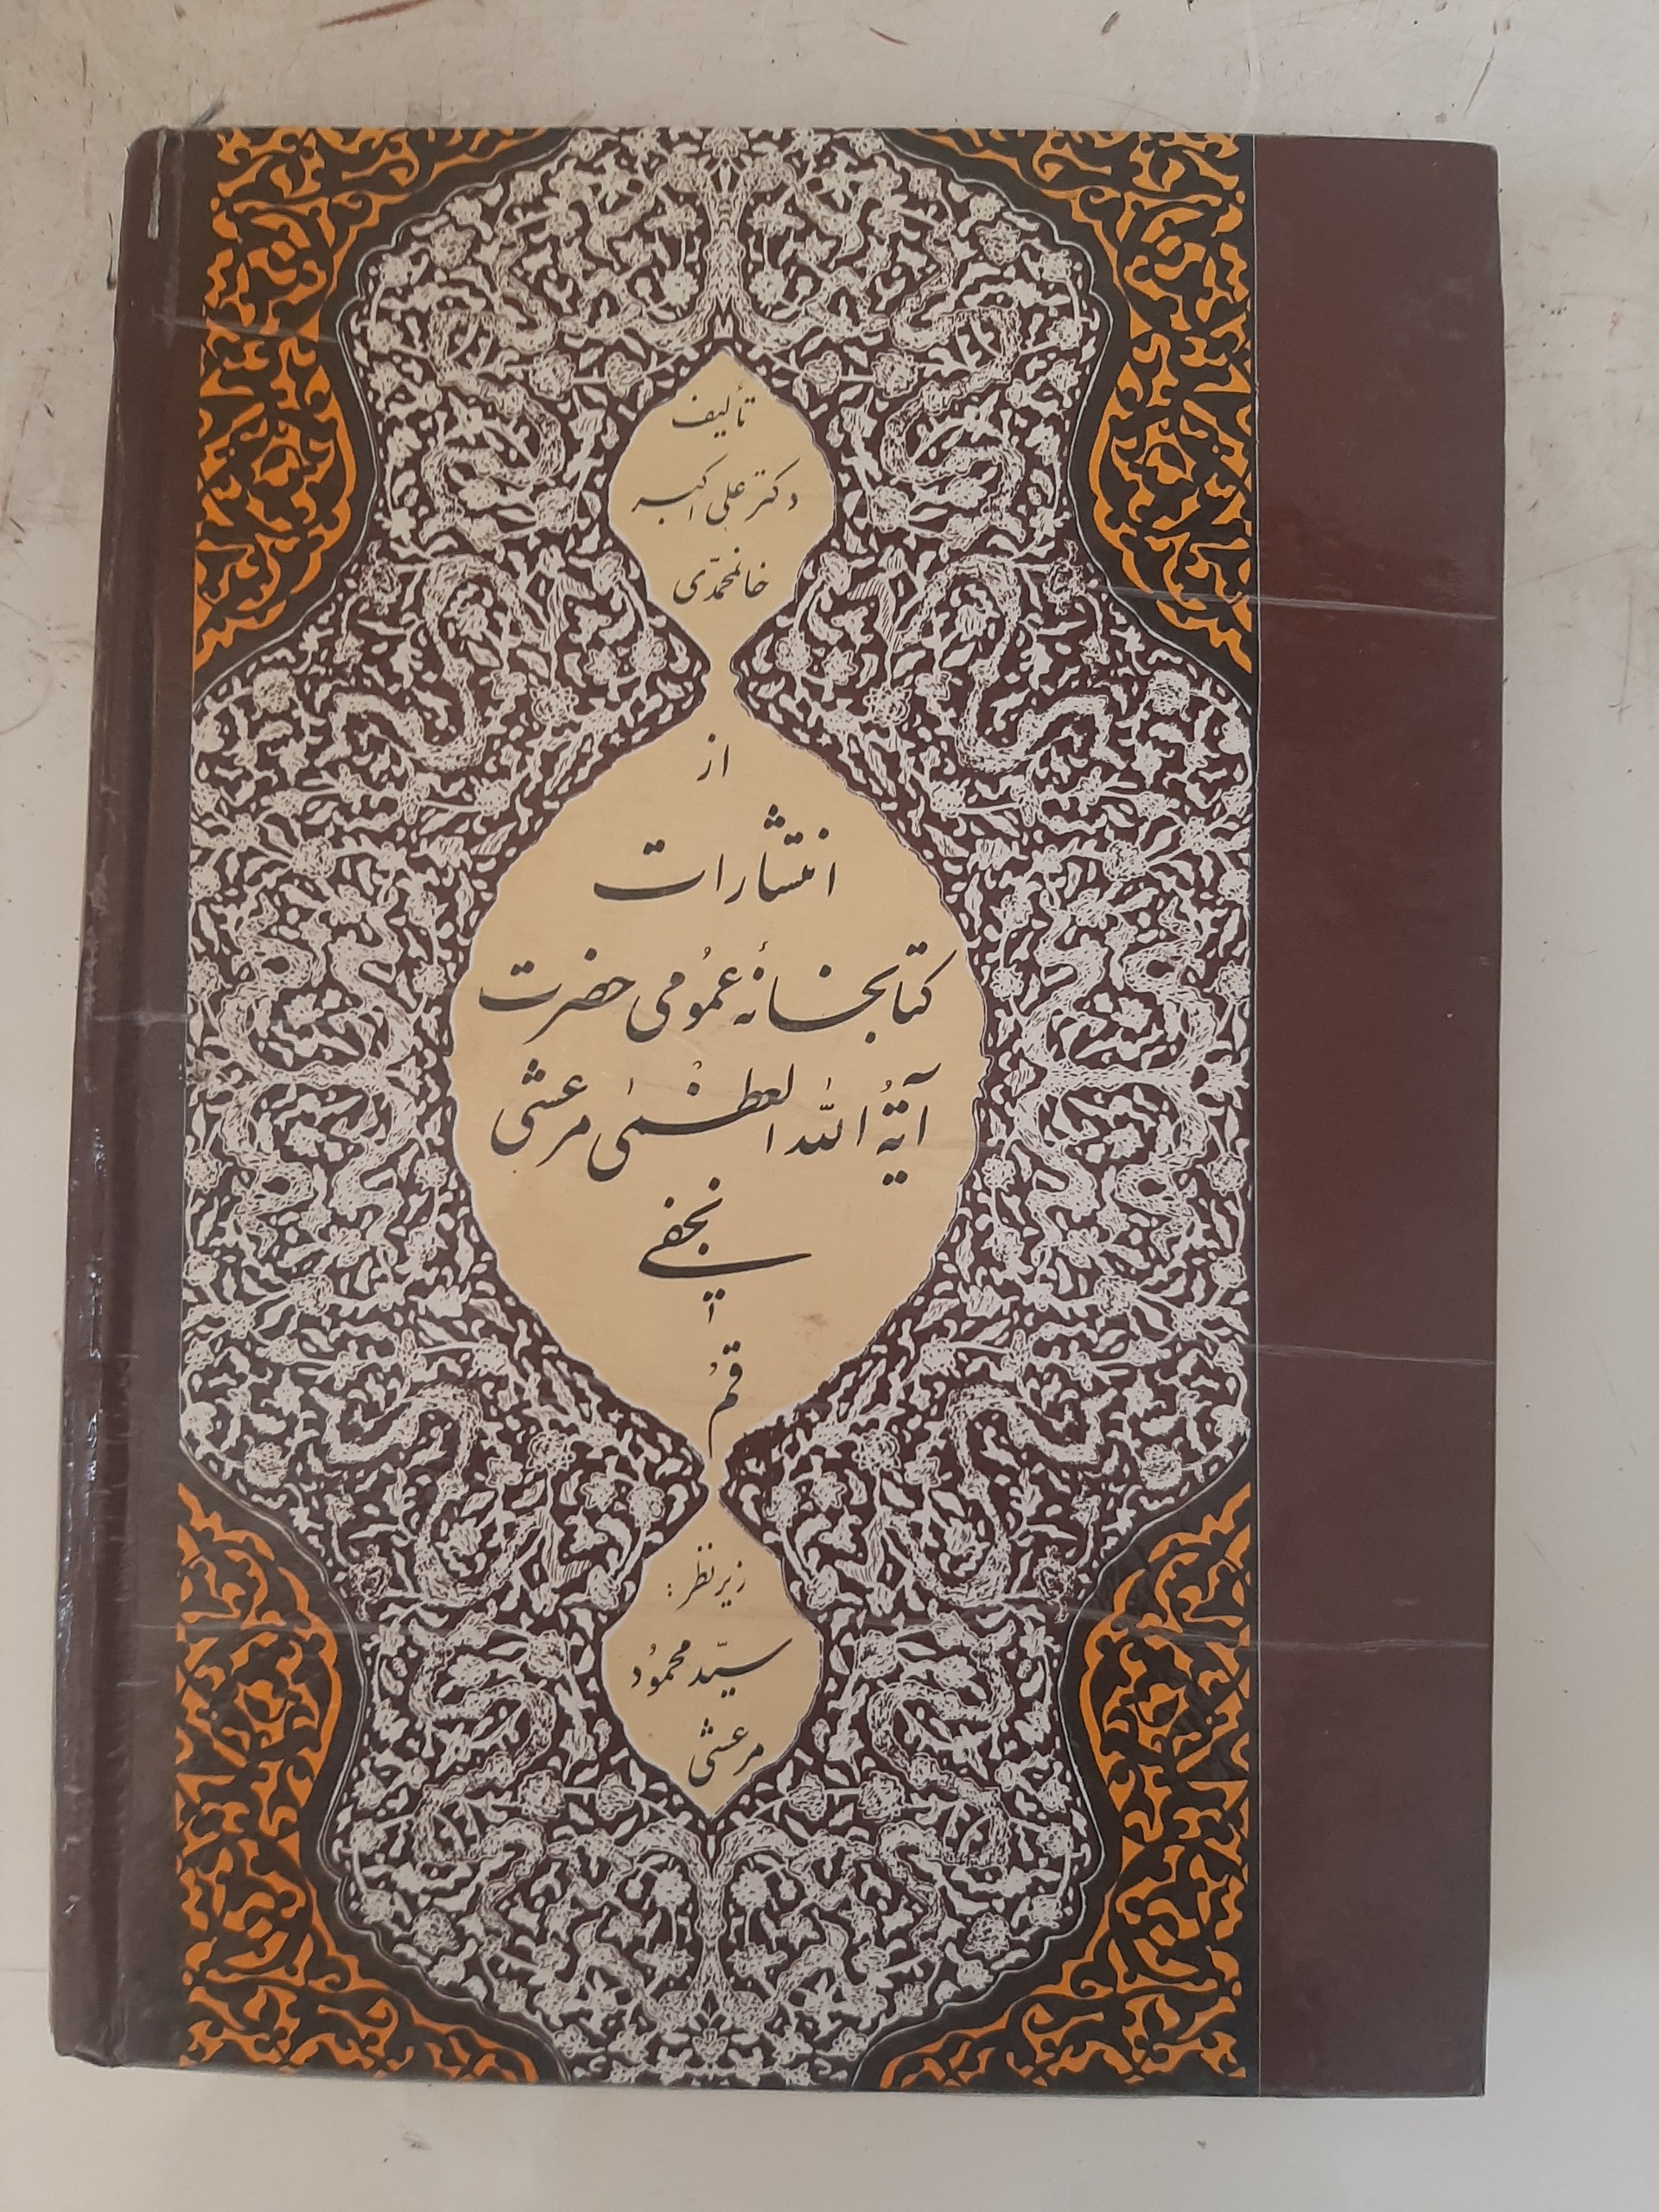 تألیف
دکتر علی اکبر
خانمحمدّی
از
انتشارات
کتابخانهٔ عمُومی حضرت
آیةُ اللّٰه العُظمیٰ مرعشی
نجفی
قمُ
زیر نظر :
سیّد محمُود
مرعشی